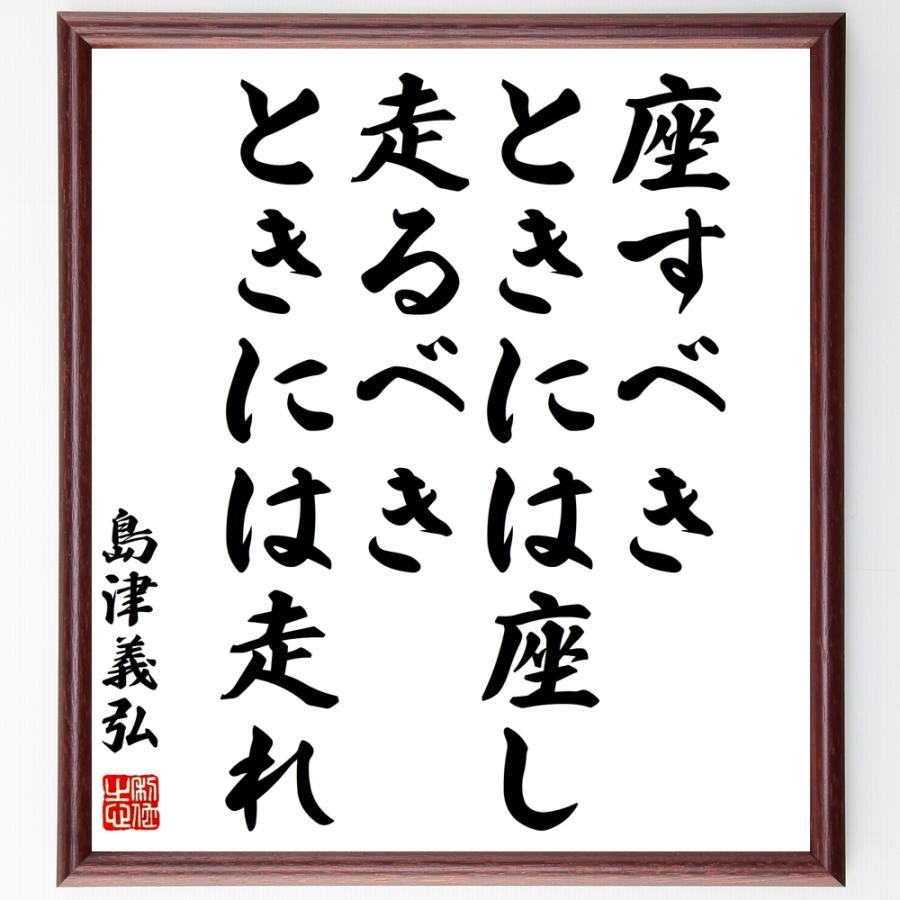 座すべき
ときには座し
走るべき
ときには走れ
島津義弘